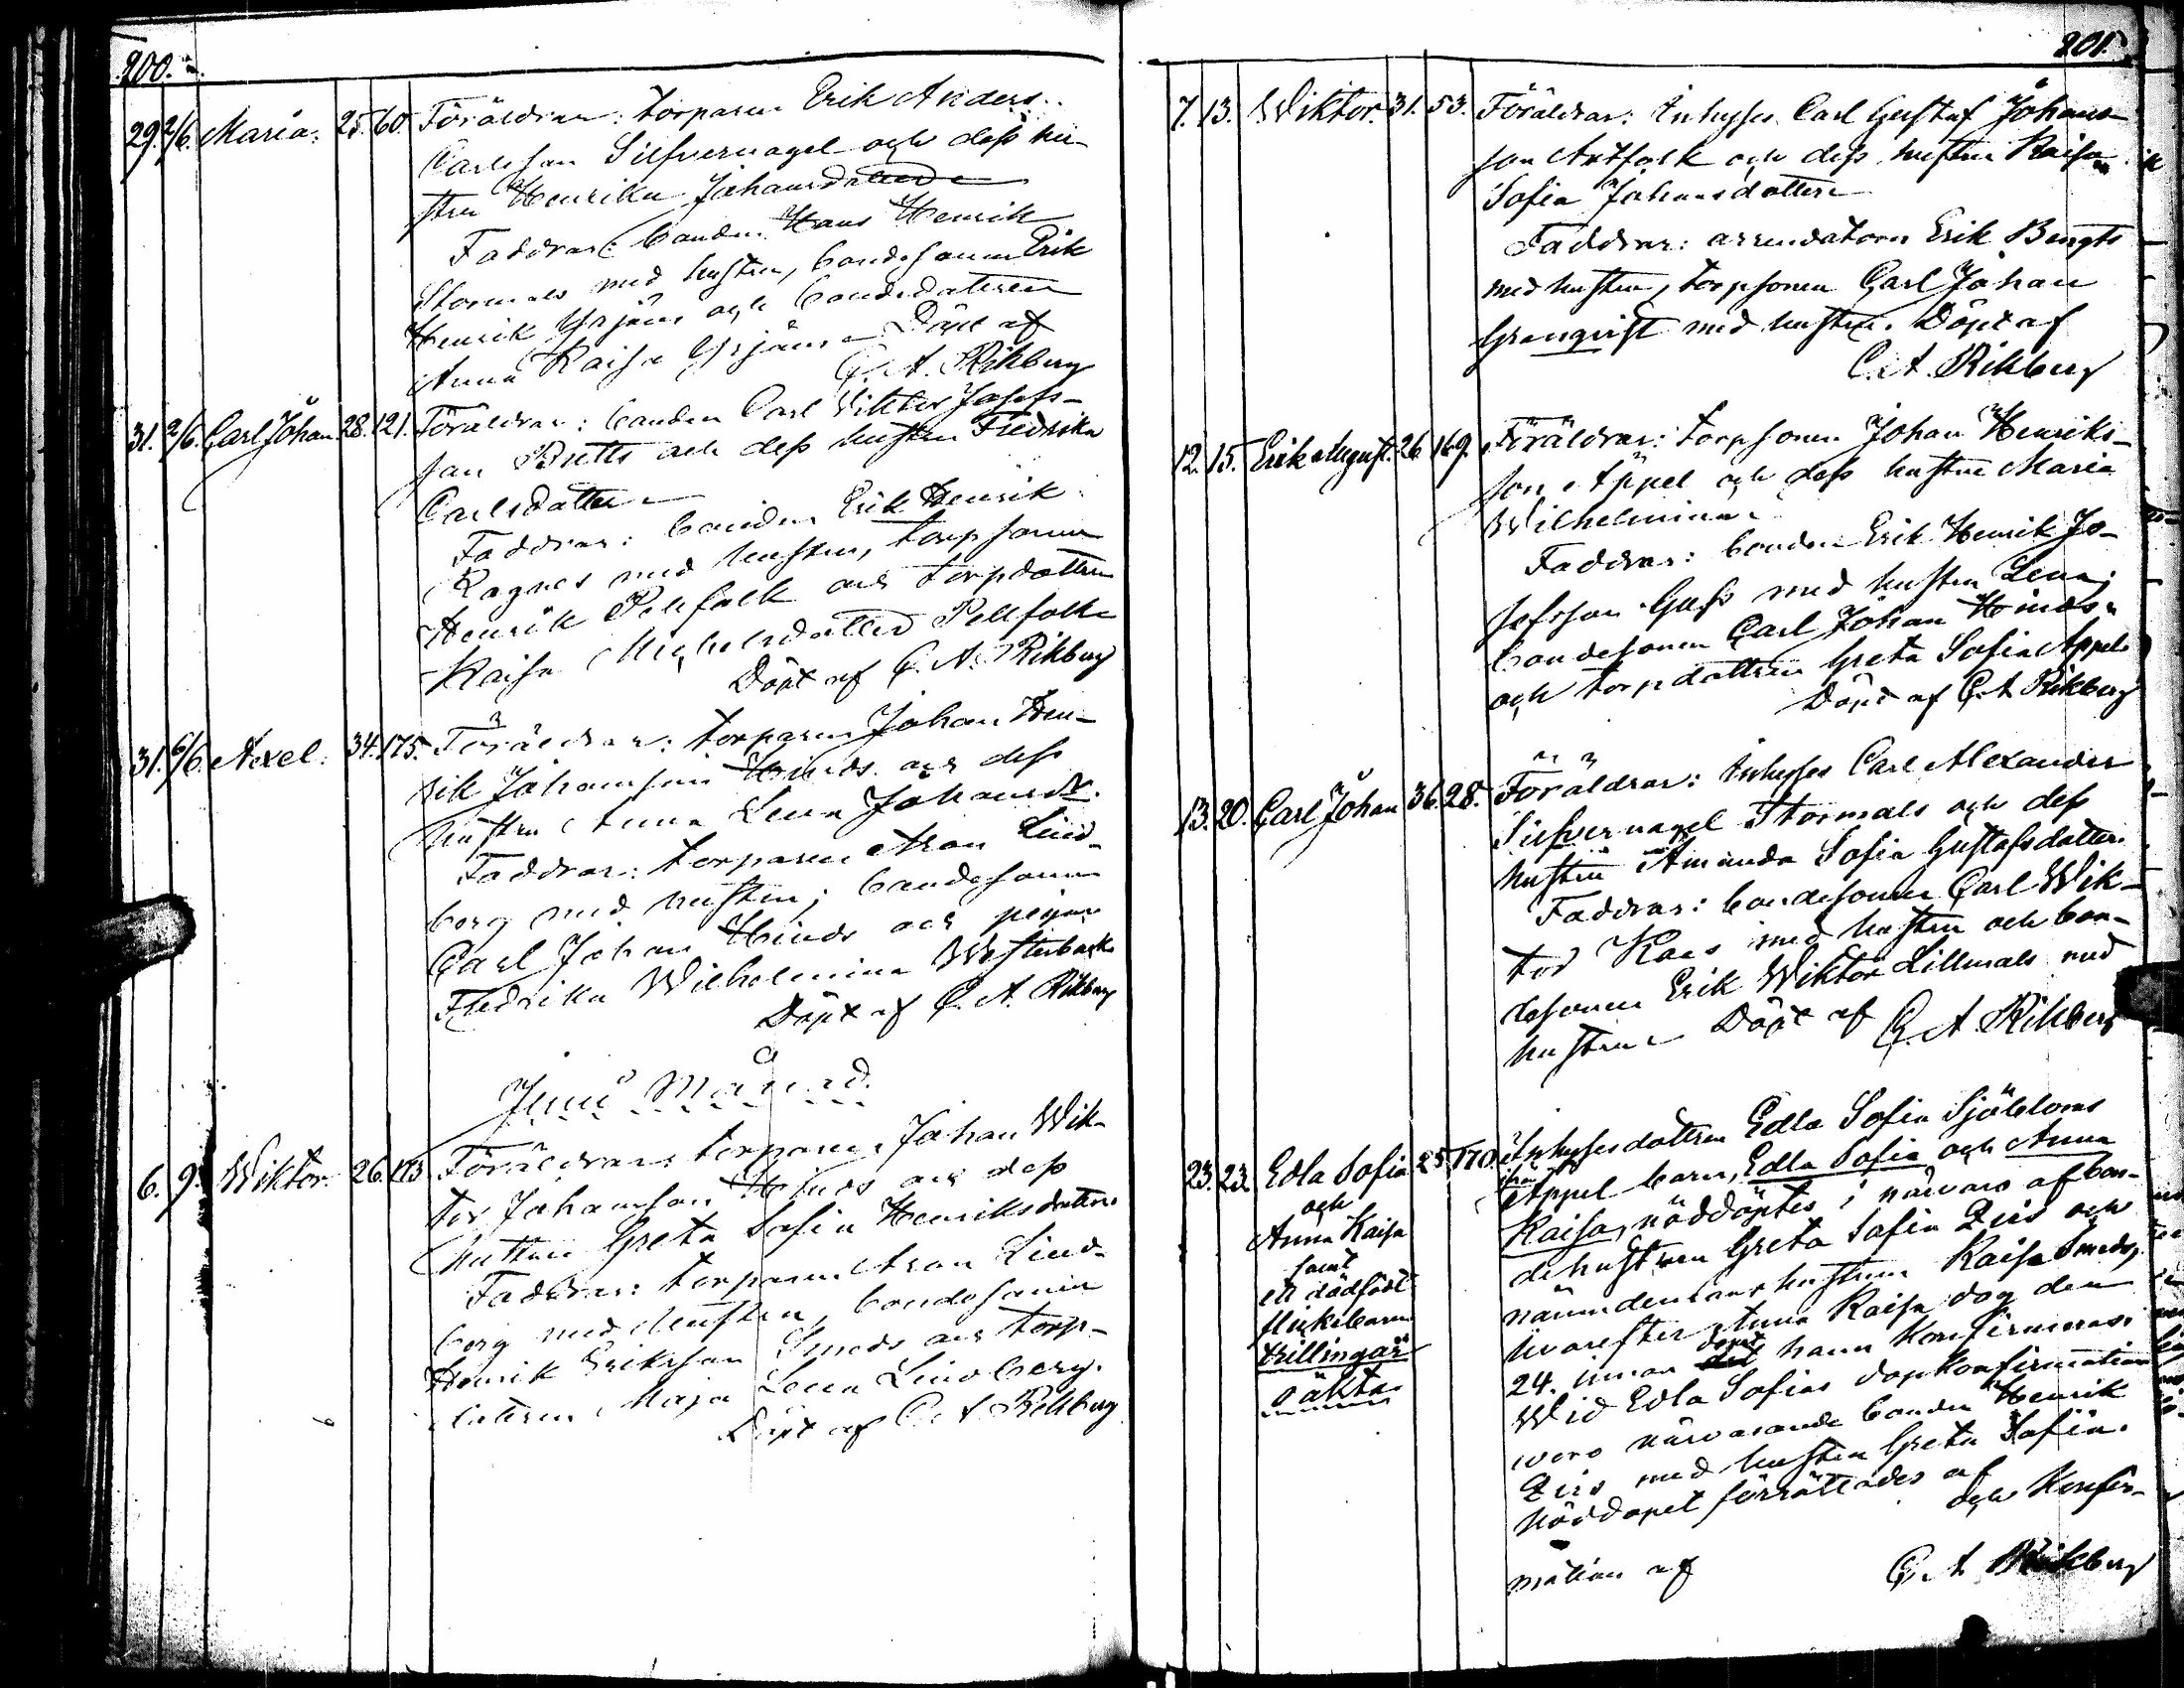 200.
29. 2/6. Maria. 25. 60. Föräldrar: torparen Erik Anders-
Carlsson Silfvernagel och dess hu-
stru Henrika Johansdotter
Faddrar: bonden Hans Henrik
Stormals med hustru, bondesonen Erik
Henrik Yrjäns och bondedottren
Anna Kaisa Yrjäns. Döpt af
C. A. Rikberg
31. 2/6. Carl Johan 28. 121. Föräldrar: bonden Carl Viktor Josefs-
son Butts och dess hustru Fredrika
Carlsdotter
Faddrar: bonden Erik Henrik
Ragnes med hustru, torpsonen
Henrik Pellfolk och torpdottren
Kaisa Michelsdotter Pellfolk
Döpt af C. A. Rikberg
31. 6/6. Axel. 34. 175. Föräldrar: torparen Johan Hen-
rik Johansson Hinds och dess
hustru Anna Lena Johansdr.
Faddrar: torparen Aron Lind-
berg med hustru; bondesonen
Carl Johan Hinds och pigan
Fredrika Wilhelmina Westerback
Döpt af C. A. Rikberg
Junii Månad.
6. 9. Wiktor. 26. 173 Föräldrar: torparen Johan Wik-
tor Johansson Hinds och dess
hustru Greta Sofia Henriksdotter
Faddrar: torparen Aron Lind-
berg med hustru, bondesonen
Henrik Eriksson Smeds och torp-
dottren Maja Lena Lindberg.
Döpt af C. A. Rikberg
201.
7. 13. Wiktor. 31. 53. Föräldrar: Inhyses Carl Gustaf Johans-
son Antfolk och dess hustru Kaisa
Sofia Johansdotter
Faddrar: arrendatorn Erik Bengts
med hustru, torpsonen Carl Johan
Granqvist med hustru. Döpt af
C. A. Rikberg
12. 15. Erik August. 26 169. Föräldrar: torpsonen Johan Henriks-
son Äppel och dess hustru Maria
Wilhelmina
Faddrar: bonden Erik Henrik Jo-
sefsson Gass med hustru Lena;
bondesonen Carl Johan Hinds
och torpdottren Greta Sofia Appel
Döpt af C. A. Rikberg
13. 20. Carl Johan 36. 28. Föräldrar: Inhyses Carl Alexander
Silfvernagel Stormals och dess
hustru Amanda Sofia Gustafsdotter
Faddrar: bondesonen Carl Wik-
tor Kaes med hustru och bon-
desonen Erik Wiktor Lillmals med
hustru Döpt af C. A. Rikberg
23. 23. Edla Sofia 25 170. Inhysesdottren Edla Sofia Sjöbloms
och
Anna Kaisa
samt
ett dödfödt
flickebarn
trillingar
oäkta
Äppel barn, Edla Sofia och Anna
Kaisa, nöddöptes i närvaro af bon-
dehustrun Greta Sofia Ziis och
nämndemanshustrun Kaisa Smeds,
hvarefter Anna Kaisa dog den
24. innan dopet hann konfirmeras.
Wid Edla Sofias dopkonfirmation
woro närvarande bonden Henrik
Ziis med hustru Greta Sofia.
Nöddopet förrättades af
och konfir-
mation af C. A. Rikberg